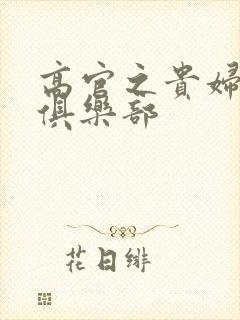 高官之貴婦
俱樂部
花日绯